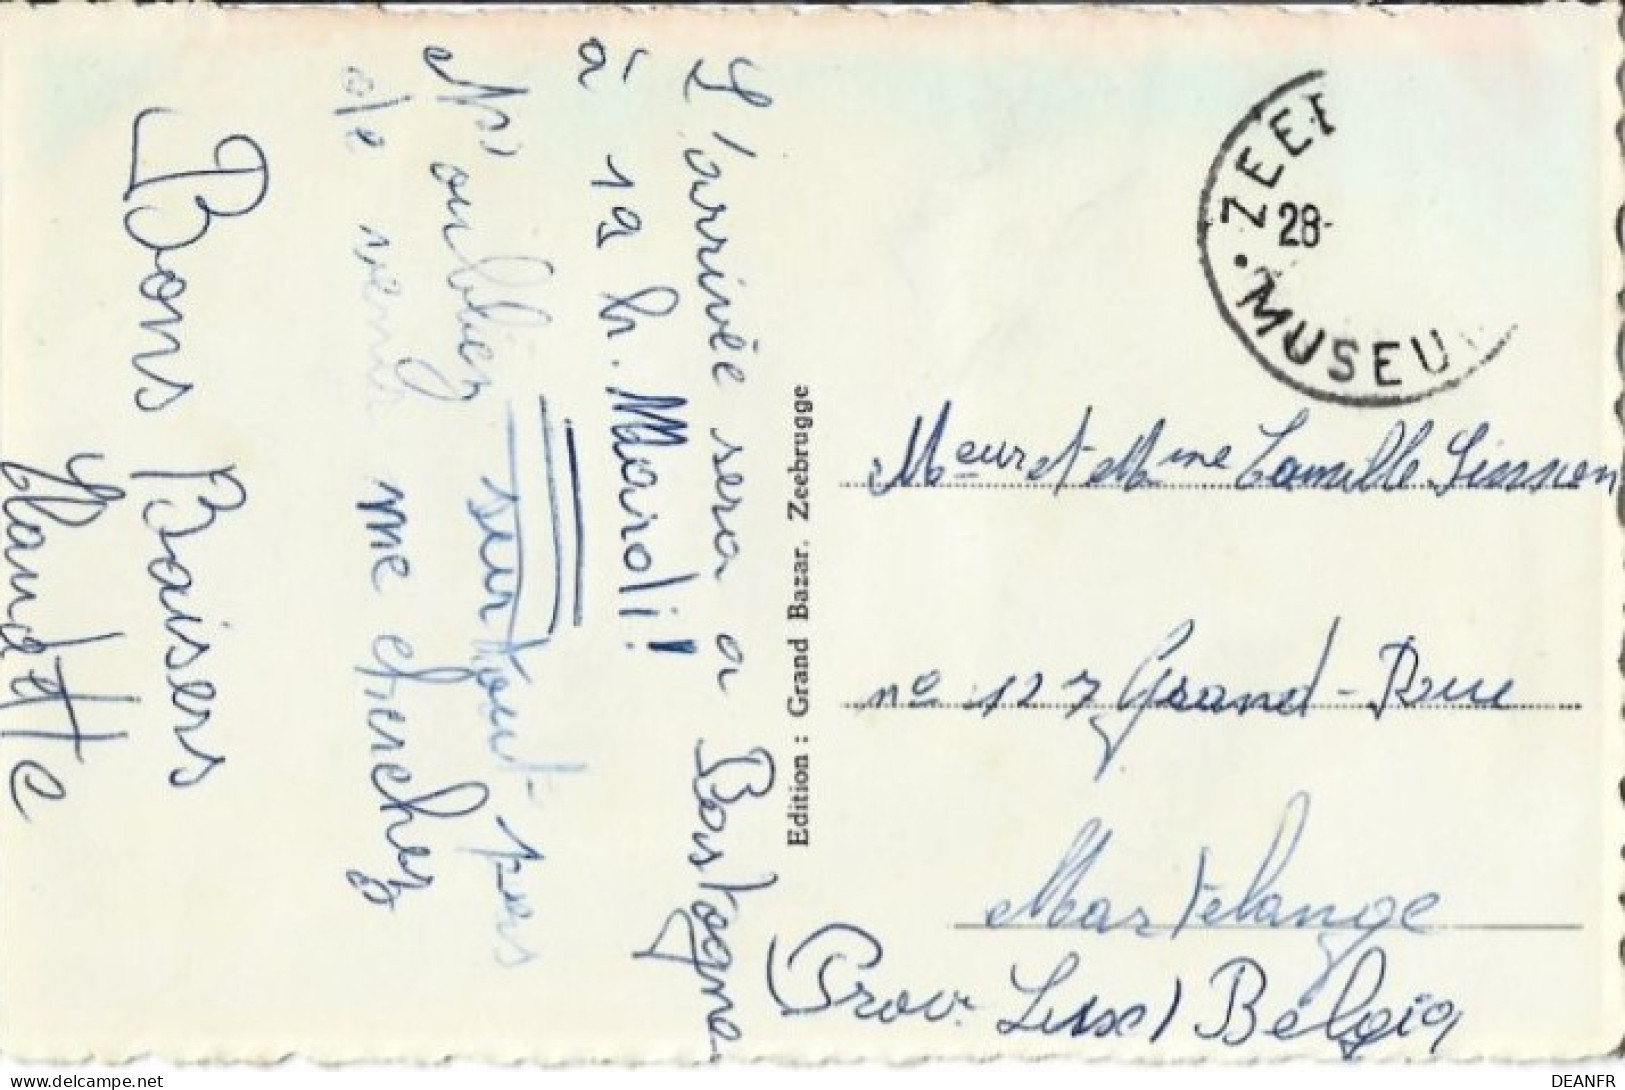 L'arrivée sera a Bastogne
à 19 h. Mardi!
N'oubliez surtout pas
de venir me cherchez
Bons Baisers
Claudette
Edition : Grand Bazar. Zeebrugge
ZEEB
28-
MUSEU
Meur et Mme Camille Sinnon
no 127 Grand-Rue
Martelange
Prov. Lux/ Belgiq
DEANFR